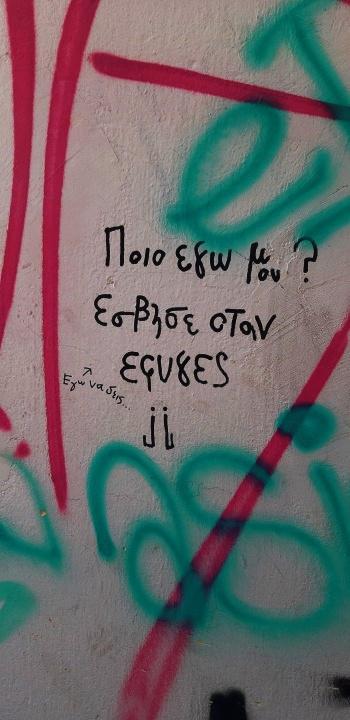 Ποιο εγω μου ?
Εσβησε οταν
εφυγες
Εγω να δεις...
jj